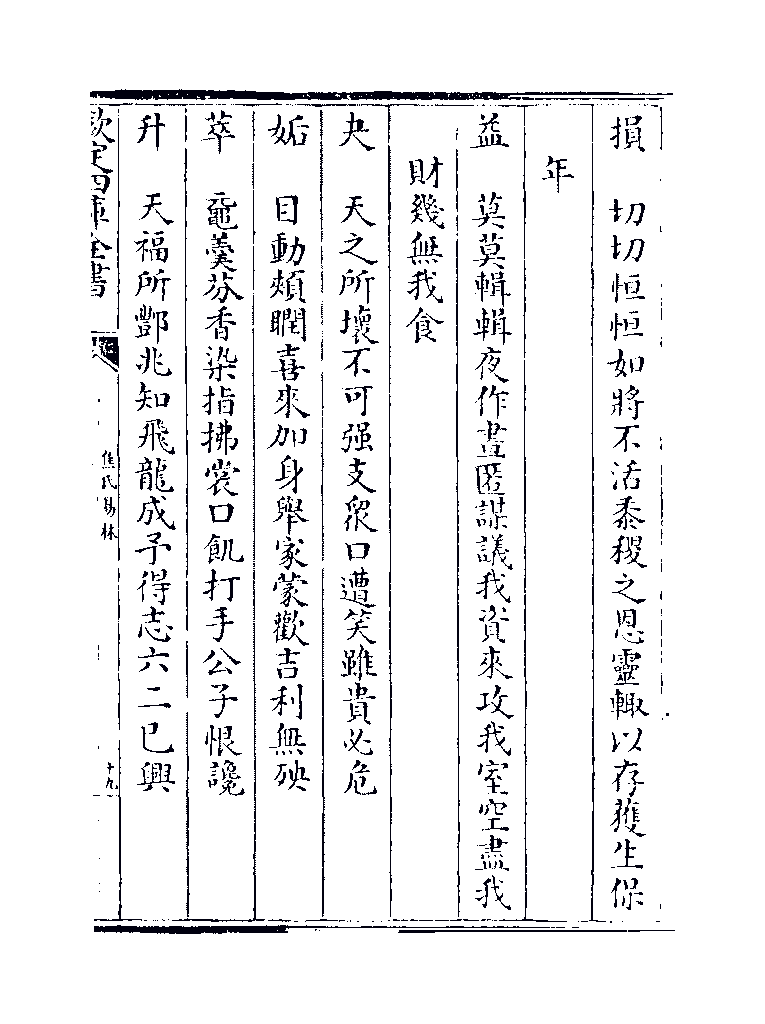 損　切切恒恒如將不活黍稷之恩靈輙以存獲生保
年
益　莫莫輯輯夜作晝匿謀議我資來攻我室空盡我
財幾無我食
夬　天之所壞不可强支衆口遭笑雖貴必危
姤　目動頰瞤喜來加身舉家蒙歡吉利無殃
萃　黿羹芬香染指拂裳口飢打手公子恨讒
升　天福所酆兆如飛龍成子得志六二已興
欽定四庫全書
焦氏易林
十九